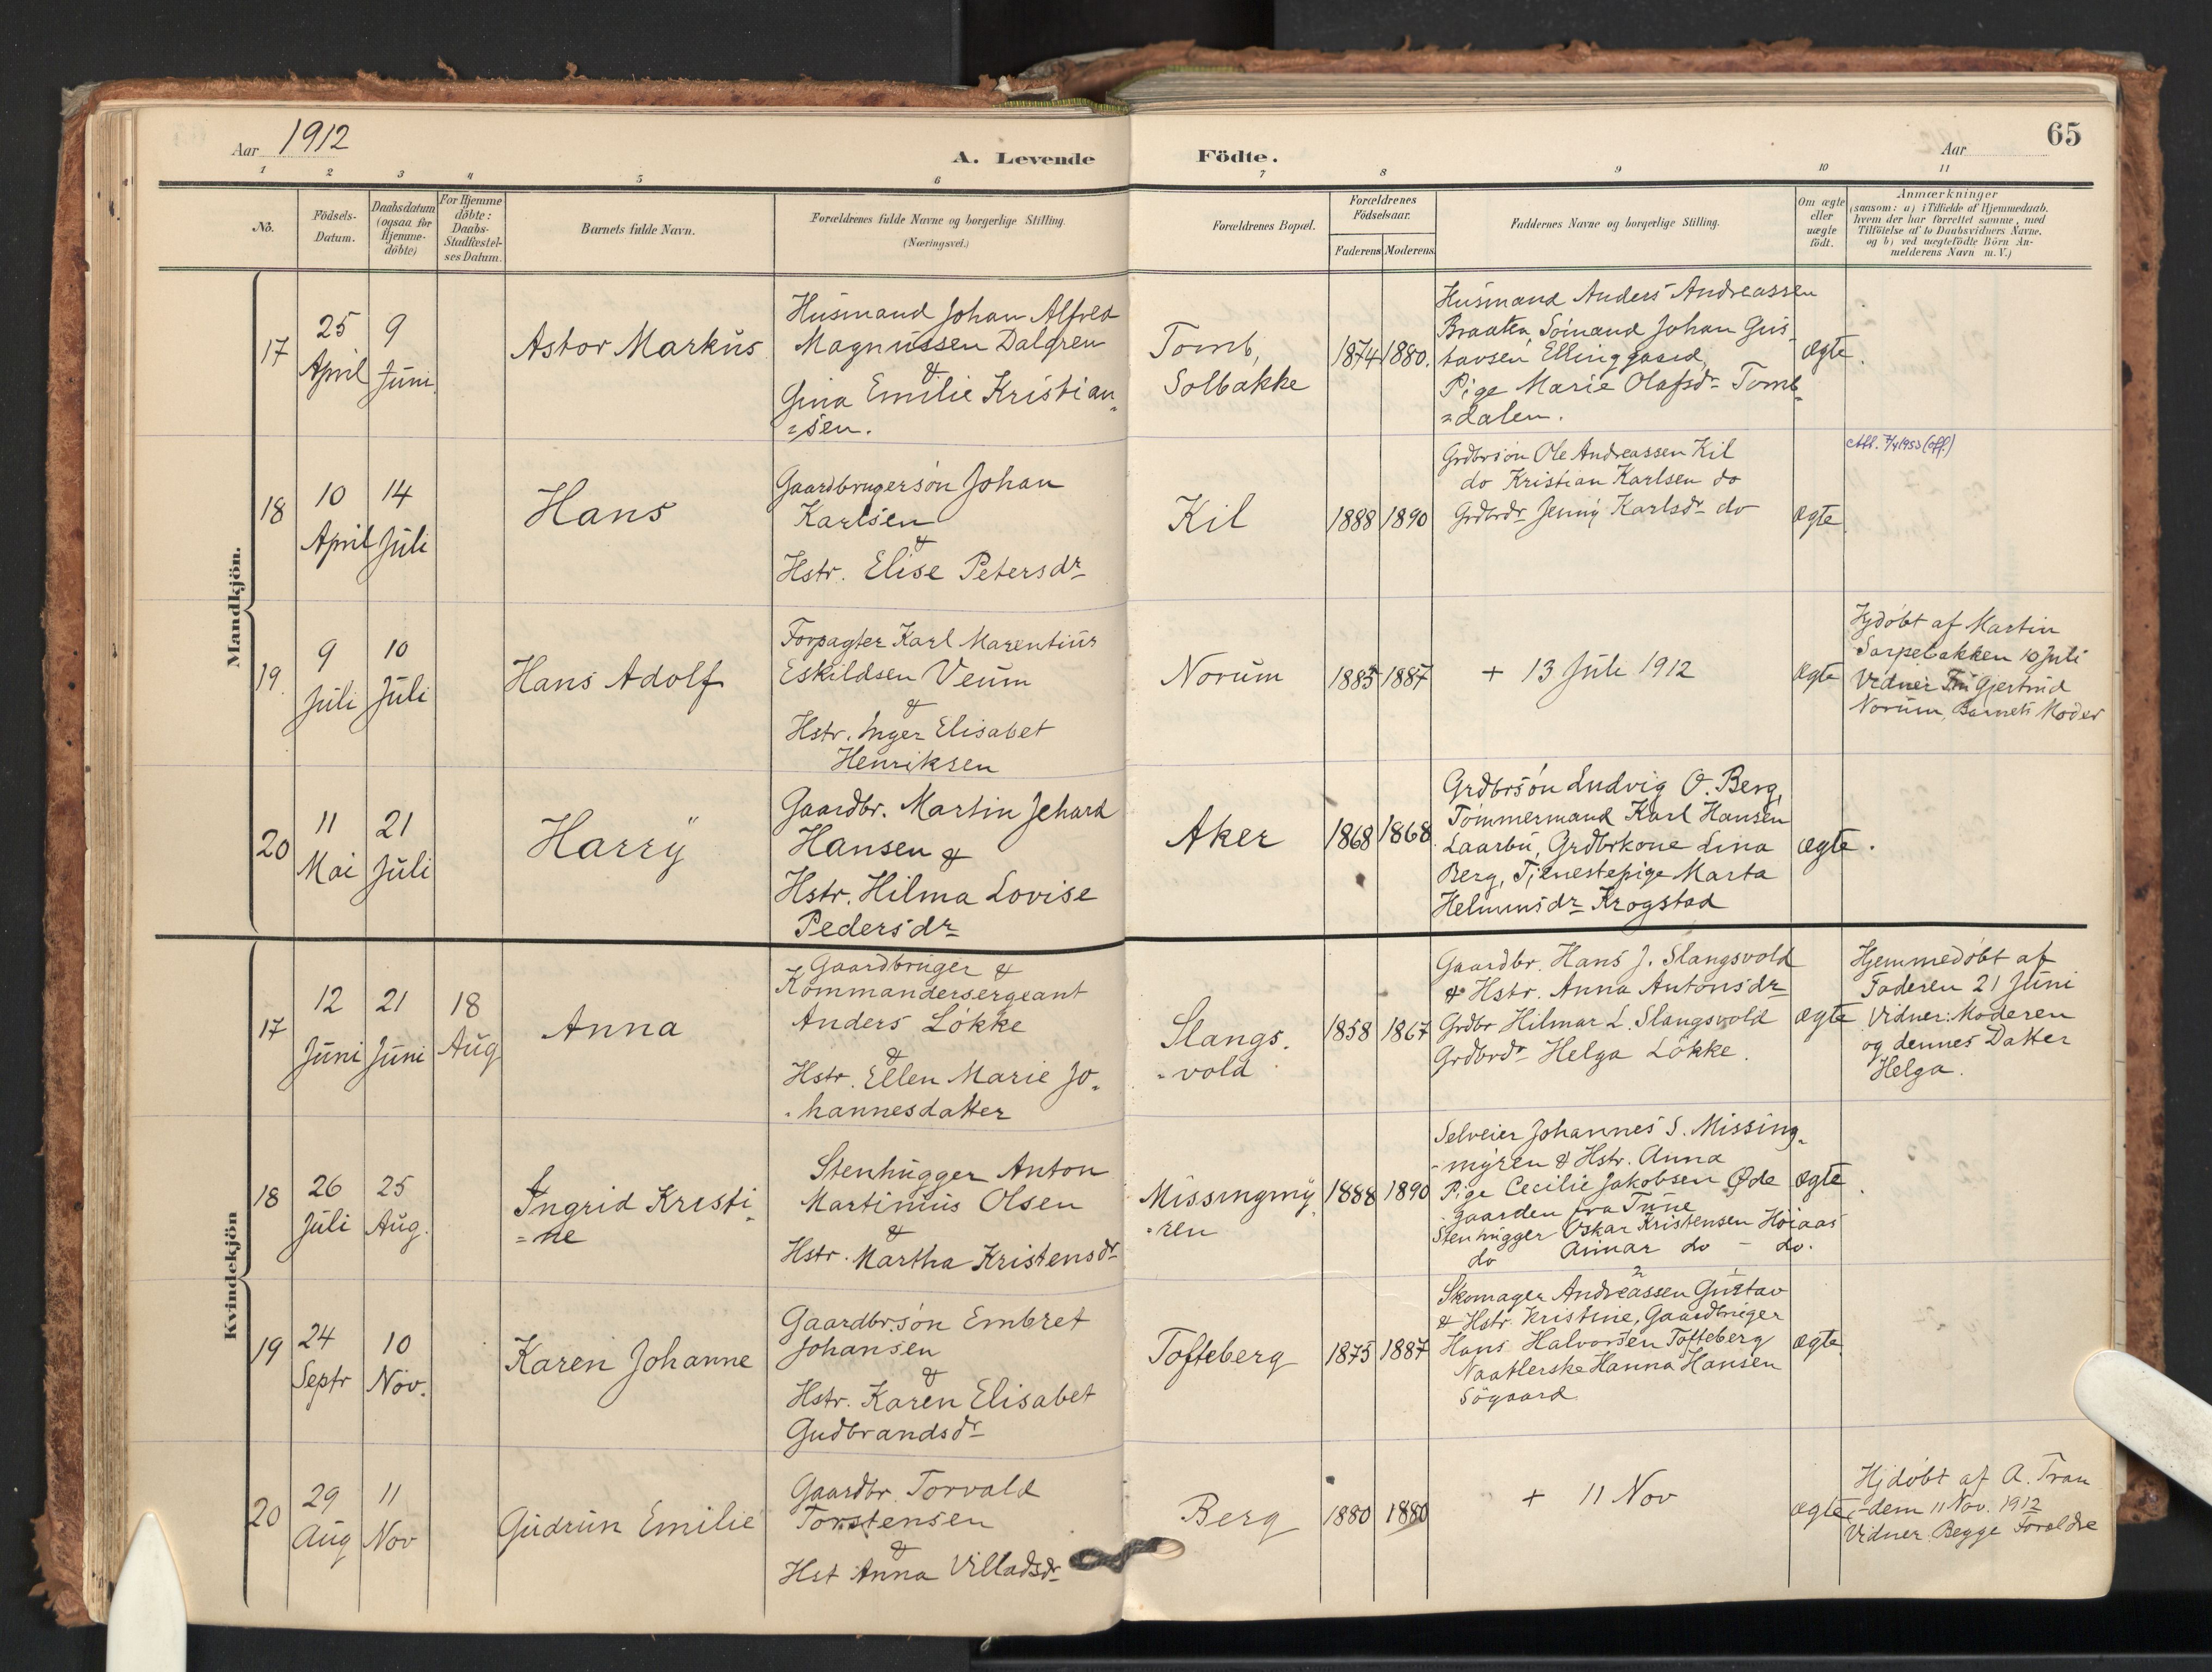 Aar 1912
A. Levende Födte.
Aar
65
1 2 3 4 5 6 7 8 9 10 11
No.
Födsels-
Datum.
Daabsdatum
(ogsaa for
Hjemme-
döbte)
For Hjemme
döbte:
Daabs-
Stadfæstel-
ses Datum.
Barnets fulde Navn.
Forældrenes fulde Navne og borgerlige Stilling.
(Næringsvei.)
Forældrenes Bopæl.
Forældrenes
Födselsaar.
Faderens Moderens
Faddernes Navne og borgerlige Stilling.
Om ægte
eller
uægte
födt.
Anmærkninger
(saasom: a) i Tilfælde af Hjemmedaab.
hvem der har forrettet samme, med
Tilföielse af to Daabsvidners Navne.
og b) ved uægtefödte Börn An-
melderens Navn m. V.)
Mandkjön.
17
25
April
9
Juni
Astor Markus
Husmand Johan Alfred
Magnussen Dalgren
&
Gina Emilie Kristian-
=sen.
Tomb,
Solbakke
1874 1880.
Husmand Anders Andreassen
Braaten, Sömand Johan Gus-
tavsen Ellinggaard,
Pige Marie Olafsdr Tomb
=dalen.
ægte.
18
10
April
14
Juli
Hans
Gaardbrugersön Johan
Karlsen
&
Hstr. Elise Petersdr
Kil
1888 1890
Grdbrsön Ole Andreassen Kil
do Kristian Karlsen do
Grdbrdr Jenny Karlsdr do
ægte
1953 (off.)
19.
9
Juli
10
Juli
Hans Adolf
Forpagter Karl Marentius
Eskildsen Veum
&
Hstr. Inger Elisabet
Henriksen
Norum
1885 1887
+ 13 Juli 1912
ægte
Hjdöbt af Martin
Sarpebakken 10 Juli
Vidner Gjertrud
Norum, Barnets Moder
20
11
Mai
21
Juli
Harry
Gaardbr. Martin Jehard
Hansen &
Hstr. Hilma Lovise
Pedersdr
Aker
1868 1868.
Grdbrsön Ludvig O. Berg,
Tömmermand Karl Hansen
Laarbu, Grdbrkone Lina
Berg, Tjenestepige Marta
Helmersdr Krogstad
ægte.
Kvindekjön
17
12
Juni
21
Juni
18
Aug
Anna
Gaardbruger &
Kommandersergeant
Anders Lökke
&
Hstr. Ellen Marie Jo-
-hannesdatter
Slangs-
-vold
1858 1867
Gaardbr. Hans J. Slangsvold
& Hstr. Anna Antonsdr
Grdbr Hilmar L. Slangsvold
Grdbrdr Helga Lökke.
ægte
Hjemmedöbt af
Faderen 21 Juni
Vidner: Moderen
og dennes Datter
Helga.
18
26
Juli
25
Aug.
Ingrid Kristi-
=ne
Stenhugger Anton
Martinius Olsen
&
Hstr. Martha Kristensdr
Missingmy-
-ren
1888 1890
Selveier Johannes S. Missing-
-myren & Hstr. Anna
Pige Cecilie Jakobsen Øde
gaarden fra Tune
Stenhugger Oskar Kristensen Höiaas
do Annar do – do.
ægte.
19
24
Septr
10
Nov.
Karen Johanne
Gaardbrsön Embret
Johansen
&
Hstr. Karen Elisabet
Gudbrandsdr
Tofteberg
1875 1887
2 1
Skomager Andreassen Gustav
& Hstr. Kristine, Gaardbruger
Hans Halvorsen Tofteberg
Naatlerske Hanna Hansen
Sögaard
ægte.
20
29
Aug
11
Nov
Gudrun Emilie
Gaardbr. Torvald
Torstensen
&
Hst Anna Villadsdr
Berg
1880 1880
+ 11 Nov
ægte
Hjdöbt af A. Tran
-dem 11 Nov. 1912
Vidner Begge Forældre